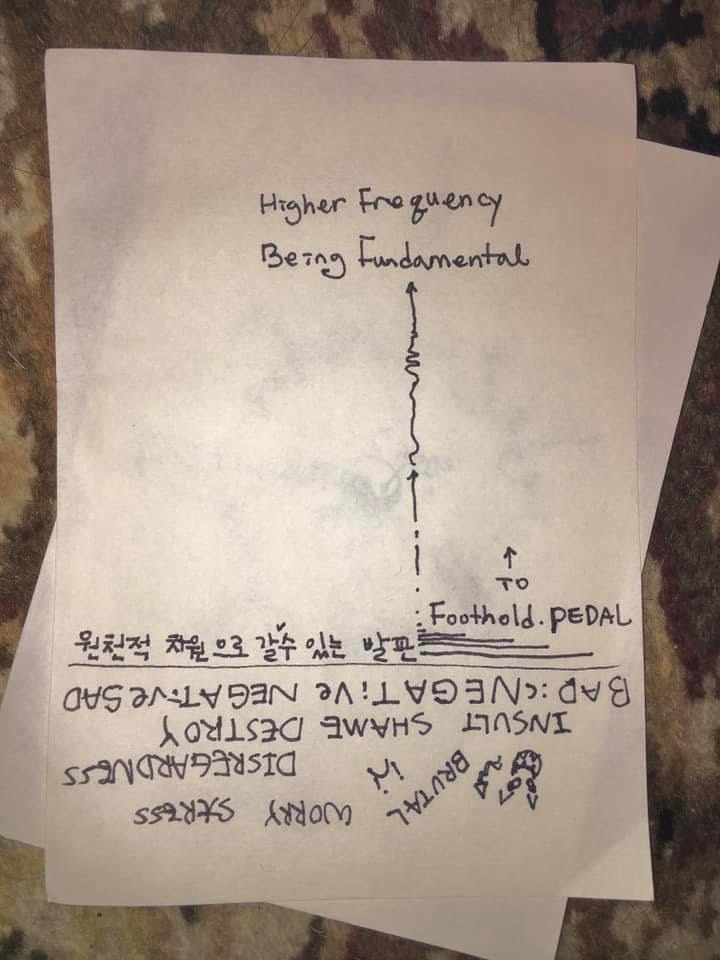 Higher Frequency
Being Fundamental
↑
TO
Foothold. PEDAL
원천적 차원으로 갈수 있는 발판
BAD :< NEGATiVE NEGATiVE SAD
INSULT SHAME DESTROY
DISREGARDNESS
BRUTAL
WORRY STRESS